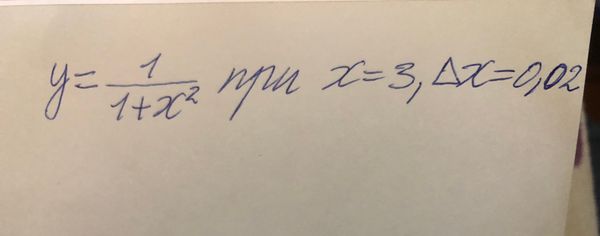 y = 1/(1+x²) при x=3, Δx=0,02